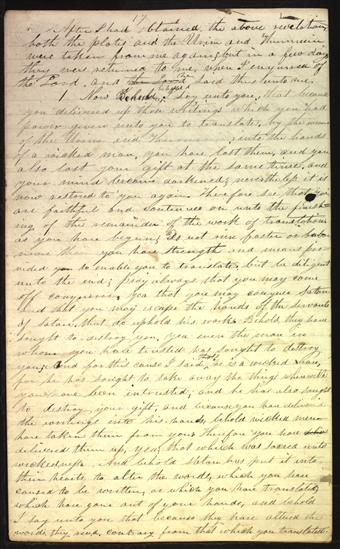 17
After I had obtained the above revelation,
both the plates and the Urim and Thummim
were taken from me again, but in a few days
they were returned to me, when I enquired of
the Lord, and the Lord said thus unto me.
1 Now Behold I say unto you, that because
you delivered up those writings which you had
power given unto you to translate, by the means
of the Urim and Thummim into the hands
of a wicked man, you have lost them, and you
also lost your gift at the same time, and
your mind became darkened; nevertheless it is
now restored to you again Therefore see that you
are faithful and continue on unto the finish-
ing of the remainder of the work of translation
as you have begun; Do not run faster or labor
more than you have strength and means pro-
vided you to enable you to translate, but be diligent
unto the end; pray always that you may come
off conqueror; yea that you may conquer Satan
and that you may escape the hands of the servants
of Satan, that do uphold his work. Behold they have
sought to destroy you, yea even the man in
whom you have trusted has sought to destroy
you, And for this cause I said that he is a wicked man,
for he has sought to take away the things wherewith
you have been intrusted; and he has also sought
to destroy your gift, and because you have delivered
the writings into his hands, behold wicked men
have taken them from you: Therefore you have
delivered them up, yea, that which was sacred unto
wickedness. And behold Satan has put it into
their hearts to alter the words which you have
caused to be written, or which you have translated,
which have gone out of your hands, and behold
I say unto you that because they have altered the
words they read contrary from that which you translated